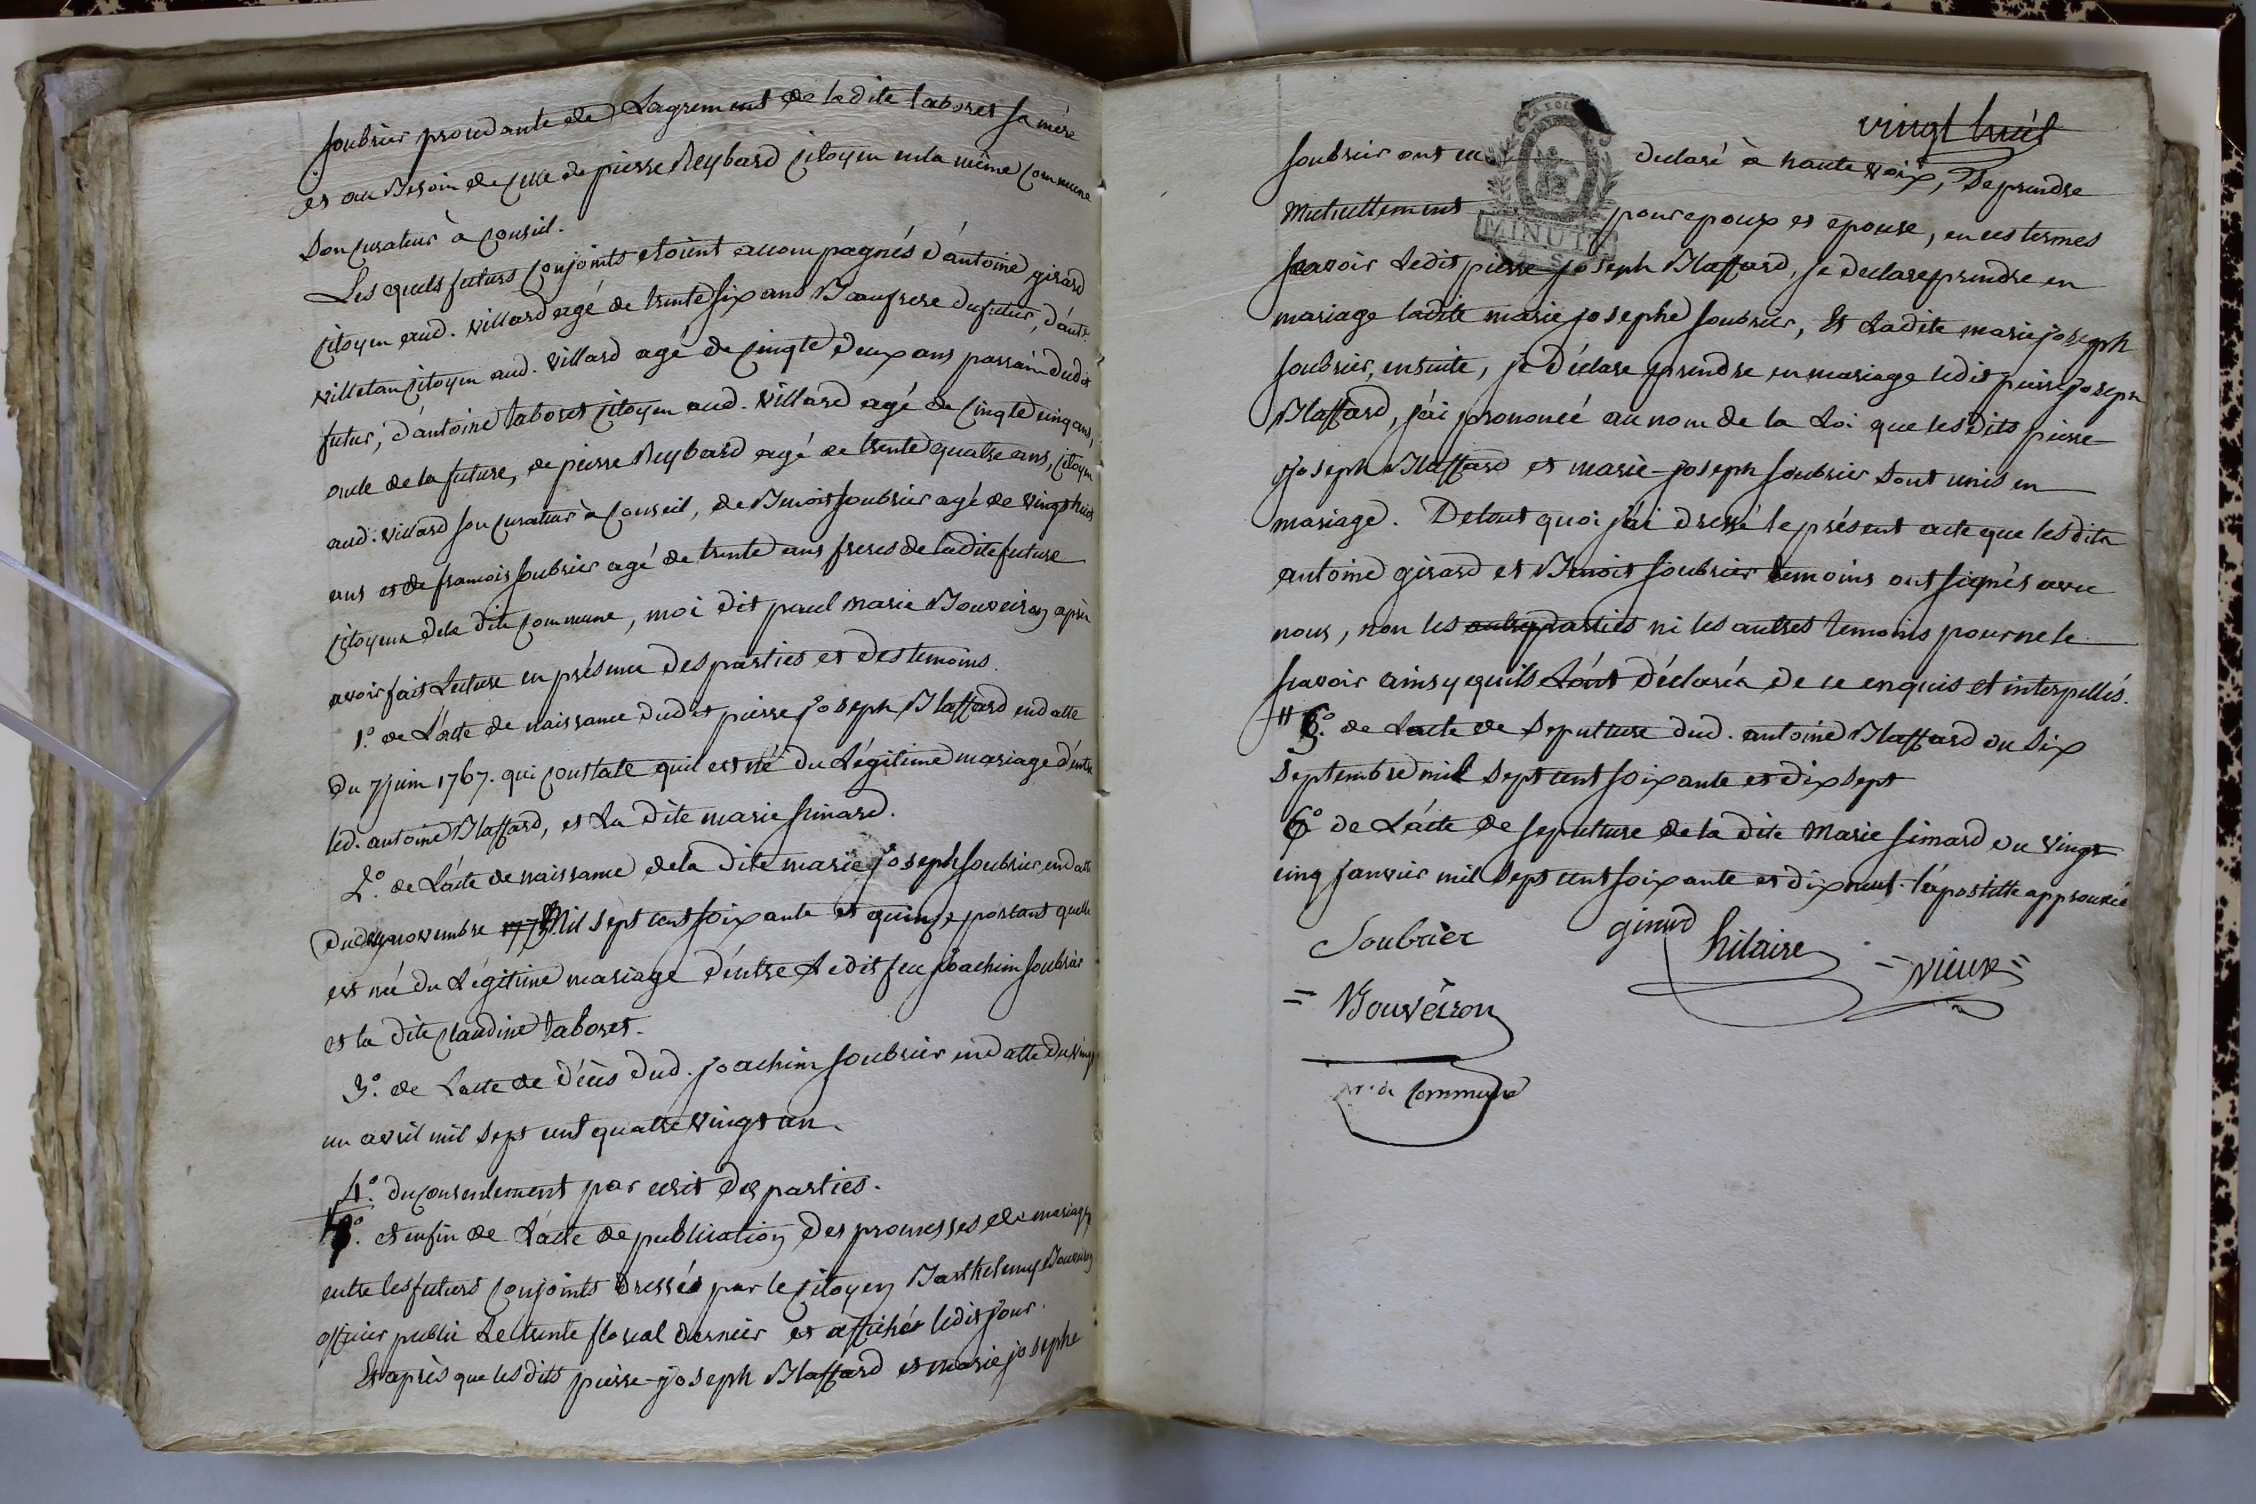 soubrier procedante de Lagrement de ladite taboret sa mere
et au Besoin de celle de pierre Reybard citoyen en la même commune
son curateur à conseil.
Les quels futurs conjoints etoient accompagnés d'antoine girard
citoyen aud. villard agé de trente six ans Beaufrere du futur, d'ant.
villetan citoyen aud. villard agé de cinqte deux ans parrain dudit
futur, d'antoine taboret citoyen aud. villard agé de cinqte cinq ans,
oncle de la future, de pierre Reybard agé de trente quatre ans, citoyen
aud. villard son curateur à conseil, de Benoit soubrier agé de vingt huit
ans et de francois soubrier agé de trente ans freres de ladite future
citoyens de la dite commune, moi dit paul marie Bouveiron après
avoir fait Lecture en présence des parties et des temoins.
1.° de L'acte de naissance dudit pierre joseph Blaffard en datte
du 7 juin 1767. qui constate quil est né du Légitime mariage d'entre
led. antoine Blaffard, et La dite marie simard.
2.° de L'acte de naissance de la dite marie joseph soubrier, en datte
du novembre Mil sept cent soixante et quinze portant quelle
est née du Légitime mariage d'entre Ledit feu joachim soubrier
et la dite claudine taboret.
3.° de Lacte de décès dud. joachim soubrier en datte du vingt
un avril mil sept cent quatre vingt un.
4.° du consentement par ecrit des parties.
et enfin de L'acte de publication des promesses de mariage
entre les futurs conjoints dressés par le citoyen Barthelemy Bouveiron
officier public Le trente floreal dernier et affichés ledit jour.
Et après que les dits pierre-joseph Blaffard et marie josephe
vingt huit
soubrier ont eu declaré à haute voix, se prendre
Mutuellement pour epoux et epouse, en ces termes
MINUTE
scavoir Ledit pierre joseph Blaffard, je declare prendre en
mariage ladite marie josephe soubrier, Et Ladite marie joseph
soubrier, ensuite, je déclare prendre en mariage ledit pierre joseph
Blaffard, j'ai prononcé au nom de la Loi que lesdits pierre
joseph Blaffard et marie-joseph soubrier sont unis en
mariage. De tout quoi j'ai dressé le présent acte que lesdits
antoine girard et Benoit soubrier temoins ont signés avec
nous, non les parties ni les autres temoins pour ne le
scavoir ainsy quils L'ont déclarés de ce enquis et interpellés.
5.° de Lacte de sepulture dud. antoine Blaffard du six
septembre mil sept cent soixante et dix sept
6° de L'acte de sepulture de la dite Marie simard du vingt
cinq janvier mil sept cent soixante et dix neuf. l'apostille approuvée
Soubrier girard hilaire = vieux =
= Bouveiron
de Commune